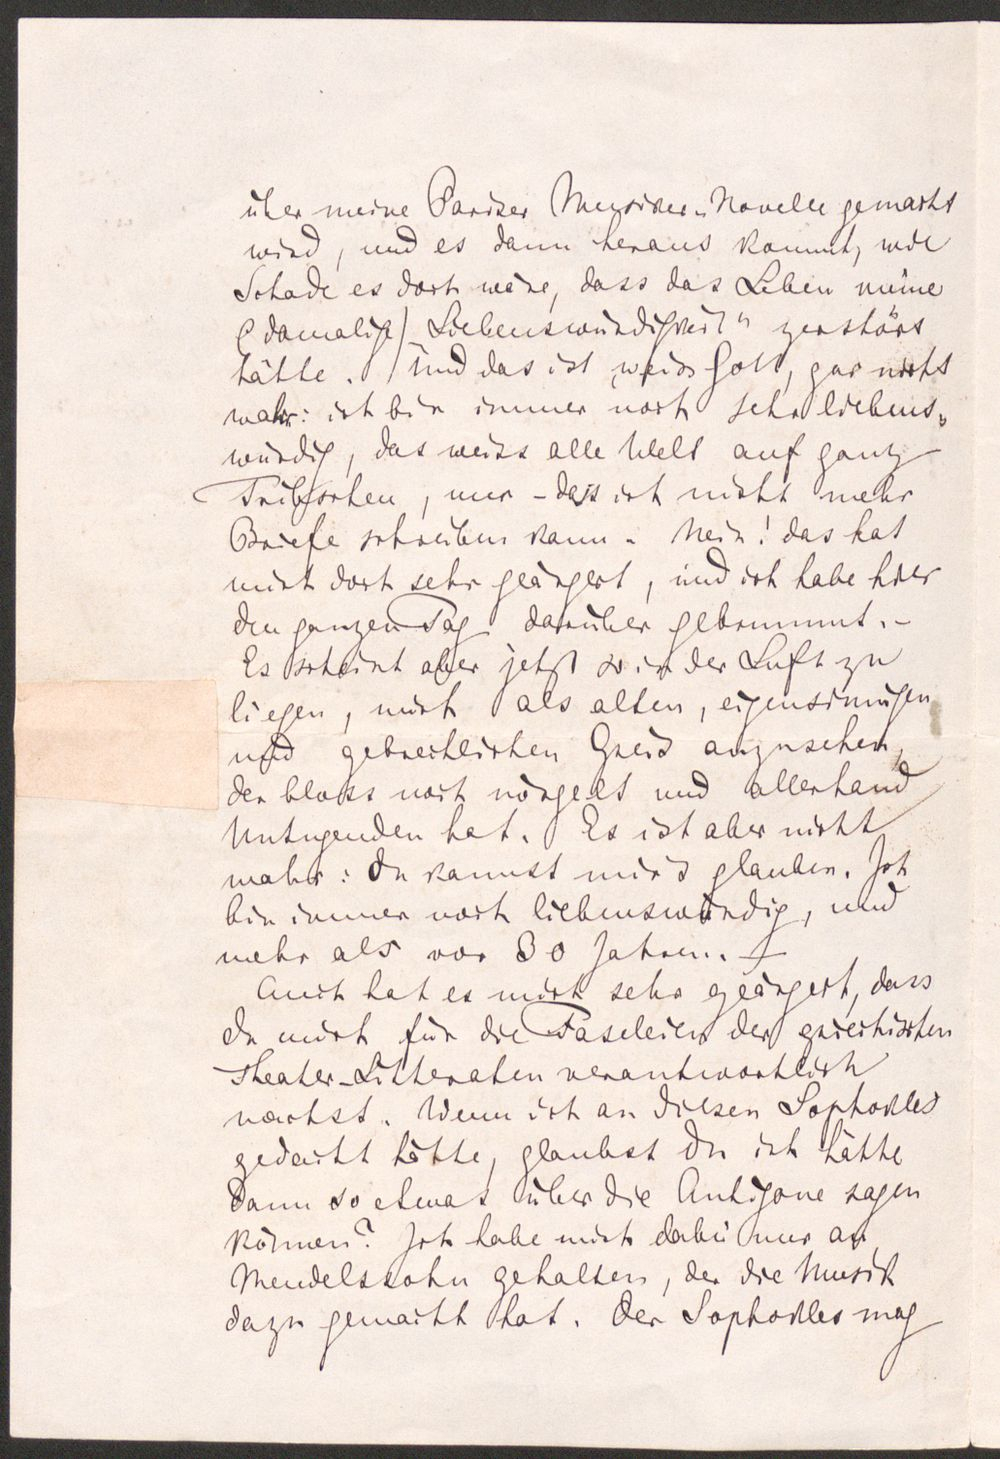 über meine Pariser Musiker-Novelle gemacht
wird, und es dann heraus kommt, wie
Schade es doch wäre, dass das Leben meine
(damalige) Liebenswürdigkeit" zerstört
hätte. Und das ist, weiss Gott, gar nicht
wahr: ich bin immer noch sehr liebens-
würdig, das weiss alle Welt auf ganz
Tribschen, nur - dass ich nicht mehr
Briefe schreiben kann. Nein! das hat
mich doch sehr geärgert, und ich habe hier
den ganzen Tag darüber gebrummt. -
Es scheint aber jetzt so in der Luft zu
liegen, mich als alten, eigensinnigen
und gebrechlichen Greis anzusehen,
der bloss noch nörgelt und allerhand
Untugenden hat. Es ist aber nicht
wahr: du kannst mir's glauben. Ich
bin immer noch liebenswürdig, und
mehr als vor 30 Jahren. -
Auch hat es mich sehr geärgert, dass
du mich für die Faseleien der griechischen
Theater-Litteraten verantwortlich
machst. Wenn ich an diesen Sophokles
gedacht hätte, glaubst du ich hätte
dann so etwas über die Antigone sagen
können? Ich habe mich dabei nur an
Mendelssohn gehalten, der die Musik
dazu gemacht hat. Der Sophokles mag